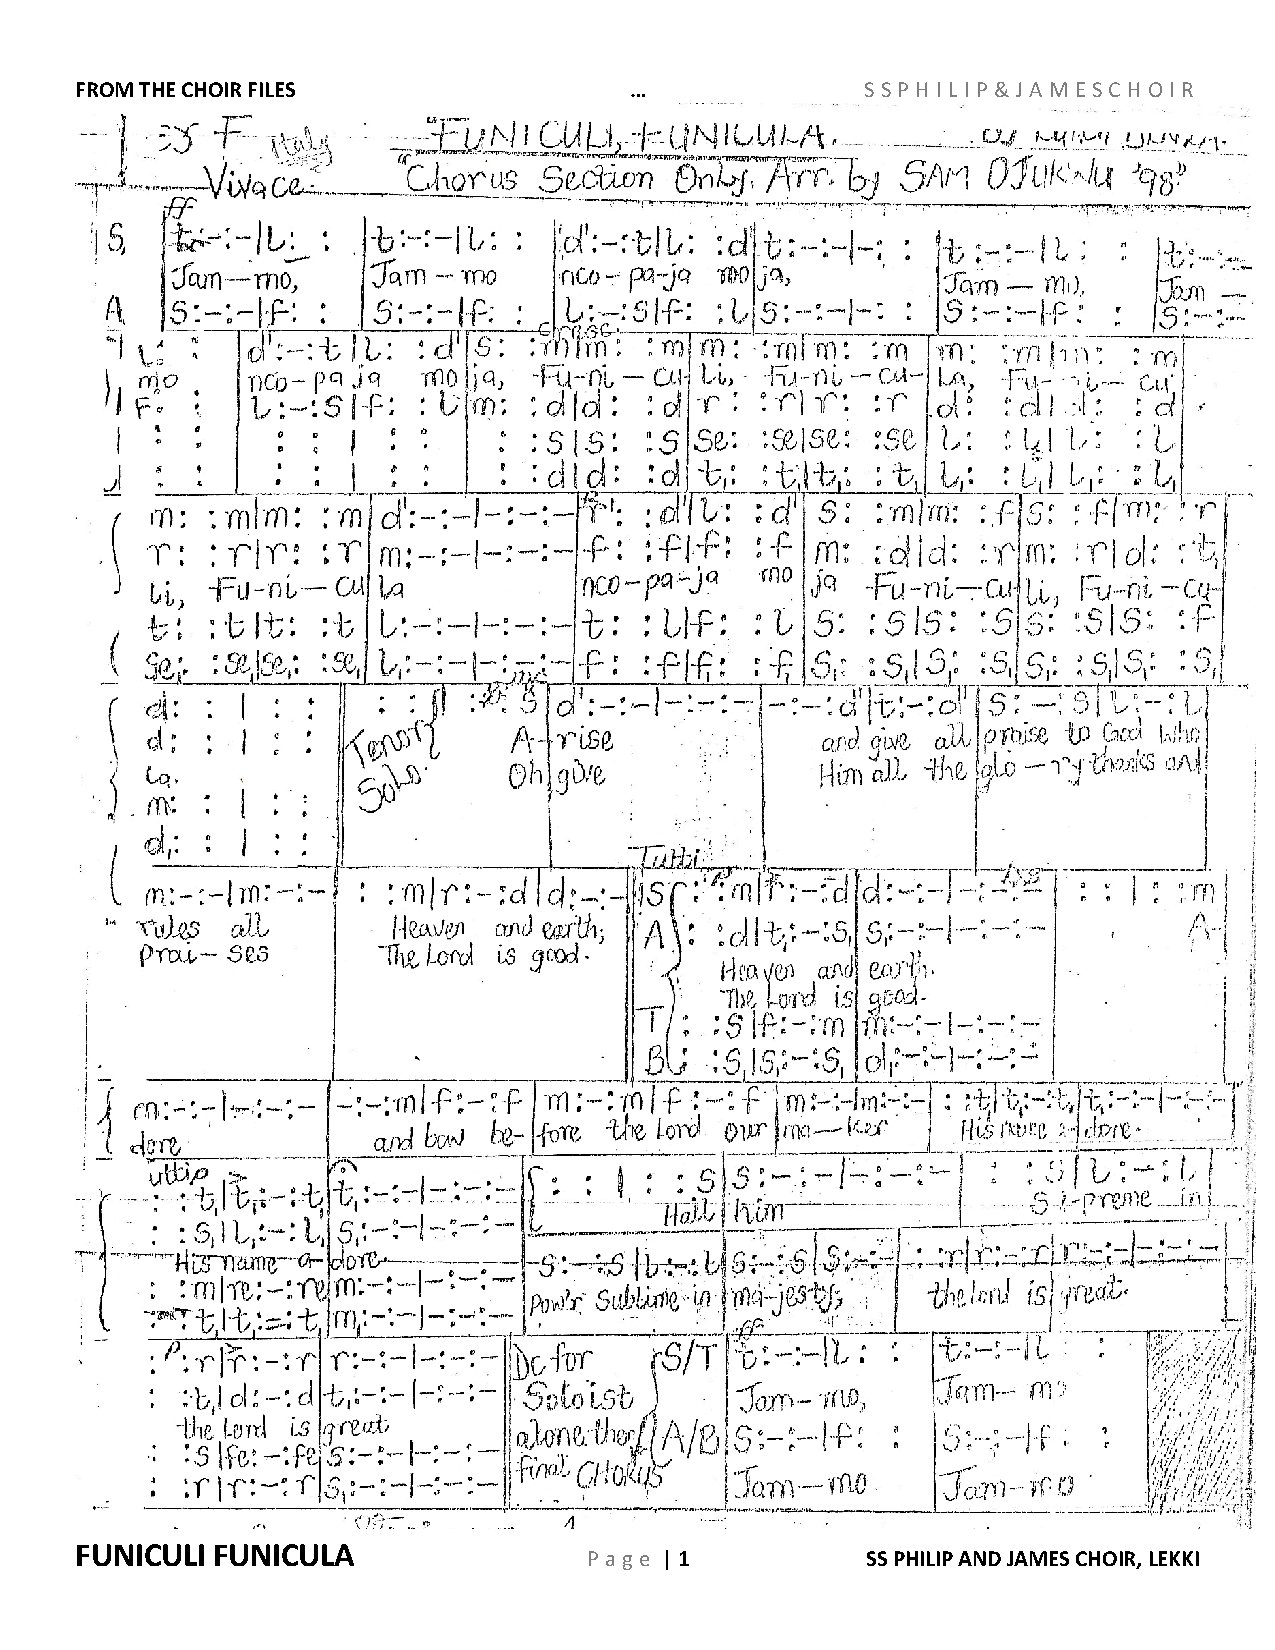 FROM THE CHOIR FILES ... SSPHILIP&JAMESCHOIR
F Italy "FUNICULI, FUNICULA.
Vivace. "Chorus Section Only. Arr. by SAM OJUKWU '98"
ff
S, t:-:-|l: : |t:-:-|l: : |d':-:t|l: :d|t:-:-|-: : |t:-:-|l: : |t:-:-
Jam—mo, Jam—mo nco-pa-ja mo ja, Jam—mo, Jam—
A |s:-:-|f: : |s:-:-|f: : |l:-:s|f: :l|s:-:-|-: : |s:-:-|f: : |s:-:-
cresc.
l: : |d':-:t|l: :d'|s: :m|m: :m|m: :m|m: :m|m: :m|m: :m
mo nco-pa ja mo ja, Fu-ni—cu-li, Fu-ni—cu-la, Fu-ni—cu
f: : |l:-:s|f: :l|m: :d|d: :d|r: :r|r: :r|d: :d|d: :d
: : | : : | : : | : :s|s: :s|se: :se|se: :se|l: :l|l: :l
: : | : : | : : | : :d|d: :d|t,: :t,|t,: :t,|l,: :l,|l,: :l,
m: :m|m: :m|d':-:-|-:-:-|f': :d'|l: :d'|s: :m|m: :f|s: :f|m: :r
r: :r|r: :r|m:-:-|-:-:-|f: :f|f: :f|m: :d|d: :r|m: :r|d: :t,
li, Fu-ni—cu la nco-pa-ja mo ja Fu-ni—cu-li, Fu-ni—cu-
t: :t|t: :t|l:-:-|-:-:-|t: :l|f: :l|s: :s|s: :s|s: :s|s: :f
se,: :se,|se,: :se,|l,:-:-|-:-:-|f: :f|f: :f,|s,: :s,|s,: :s,|s,: :s,|s,: :s,
d: : | : : || : : | : :s|d':-:-|-:-:-|-:-:d'|t:-:d'|s:-:s|l:-:l
d: : | : : Tenor A-rise and give all praise to God who
la. Solo. Oh give Him all the glo—ry thanks and
m: : | : :
d,: : | : :
Tutti
m:-:-|m:-:-| : :m|r:-:d|d:-:-||S : :m|r:-:d|d:-:-|-:-:-| : : | : :m
rules all Heaven and earth; A : :d|t,:-:s,|s,:-:-|-:-:- A-
prai-ses The Lord is good. Heaven and earth.
The Lord is good.
T : :s|f:-:m|m:-:-|-:-:-
B : :s,|s,:-:s,|d,:-:-|-:-:-
m:-:-|-:-:-|-:-:m|f:-:f|m:-:m|f:-:f|m:-:-|m:-:-| : :t,|t,:-:t,|t,:-:-|-:-:-
dore and bow be-fore the Lord our ma—ker His name a-dore.
: :t,|t,:-:t,|t,:-:-|-:-:- : : | : :s|s:-:-|-:-:-| : :s|l:-:l
: :s,|l,:-:l,|s,:-:-|-:-:- Hail him Supreme in
His name a-dore. s:-:s|l:-:l|s:-:s|s:-:-| : :r|r:-:r|r:-:-|-:-:-
: :m|re:-:re|m:-:-|-:-:- pow'r sublime in ma-jesty; the lord is great.
: :t,|t,:-:t,|m,:-:-|-:-:-
ff
: :r|r:-:r|r:-:-|-:-:- Dc for S/T t:-:-|l: : |t:-:-|l :
: :t,|d:-:d|t,:-:-|-:-:- Soloist Jam—mo, Jam—mo
the Lord is great alone then A/B s:-:-|f: : |s:-:-|f: :
: :s|fe:-:fe|s:-:-|-:-:- final CHORUS Jam—mo Jam-mo
: :r|r:-:r|s,:-:-|-:-:-
FUNICULI FUNICULA Page | 1 SS PHILIP AND JAMES CHOIR, LEKKI